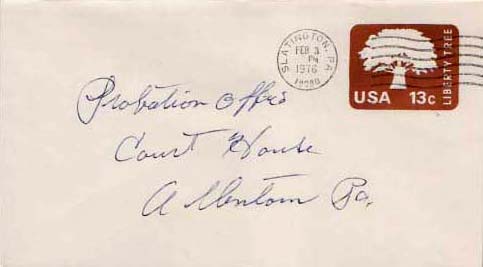 SLATINGTON, PA
FEB 3
PM
1976
USA 13c
LIBERTY TREE
Probation Offers
Court House
Allentown Pa.